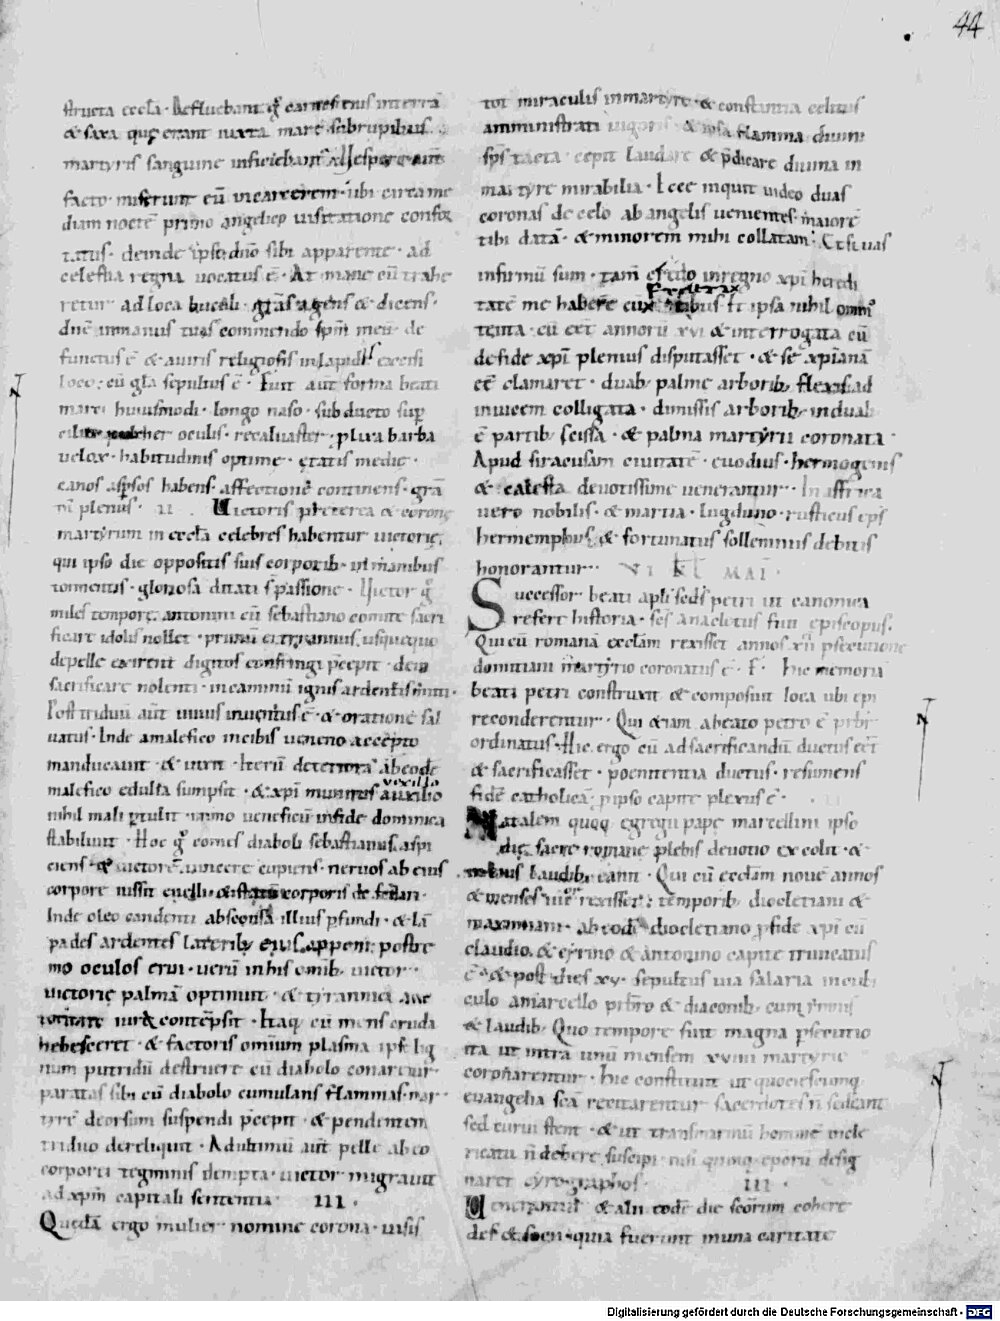 44
structa eccła · Defluebant g̊ carnes eius in terrā
& saxa quę erant iuxta mare sub rupibus
martyris sanguine inficiebant · Vespere aut̄
facto miserunt eū in carcerem · ubi circa me
diam noctē primo angelica visitatione confor
tatus · deinde ipso dn̄o sibi apparente · ad
celestia regna vocatus ē · At mane cū trahe
retur ad loca buculi · gr̄as agens & dicens ·
dn̄e in manus tuas commendo sp̄m meū · de
functus ē & a viris religiosis in lapidis excisi
loco · cū gl̄a sepultus ē · Fuit aut̄ forma beati
marci huiusmodi · longo naso · subducto sup
cilio pulcher oculis · recalvaster · plixa barba
velox · habitudinis optime · ętatis medię ·
canos asp̱sos habens · affectione continens · gr̄a
plenus · II · Victoris preterea & coronę
martyrum in eccła celebres habentur victorię,
qui ipso die oppositis suis corporib; inmanibus
tormentis · gloriosa ditati s̄ passione · Victor g̊
miles tempore antonini cū sebastiano comite sacri
ficare idolis nollet · primū ei tyrannus, usquequo
de pelle exirent digitos confringi p̄cepit · dein
sacrificare nolentē · in caminū ignis ardentis mitti ·
Post triduū aut̄ vivus inventus ē · & oratione sal
vatus · Inde a malefico in cibis veneno accepto
manducavit · & vixit · Iterū deteriora ab eodē
malefico edulia sumpsit · & xp̄i munitus auxilio vexillo
nihil mali p̱tulit · immo veneficū in fide dominica
stabilivit · Hoc g̊ comes diaboli sebastianus aspi
ciens · & victorē vincere cupiens · nervos ab eius
corpore iussit evelli
Inde oleo candenti absconsa illius p̱fundi · & lā
pades ardentes laterib; eius apponi · postre
mo oculos erui · verū in his omnib; victor
victorię palmā optinuit · & tyrannica auc
toritate iura contēpsit · Itaq; cū mens cruda
hebesceret · & factoris omnium plasma ipse lig
num putridū destruere cū diabolo conaretur
paratas sibi cū diabolo cumulans flammas · mar
tyrē deorsum suspendi p̄cepit · & pendentem
triduo dereliquit · Ad ultimū aut̄ pelle ab eo
corporei tegminis dempta · victor migravit
ad xp̄m capitali sententia · III ·
Quędā ergo mulier nomine corona · visis
tot miraculis in martyre & constantia celitus
amministrati vigoris · & ipsa flamma divini
sp̄s tacta · cepit laudare & p̄dicare divina in
martyre mirabilia · Ecce inquit video duas
coronas de celo ab angelis venientes · maiorē
tibi datā · & minorem mihi collatam · Etsi vas
infirmū sum · tam̄ credo in regno xp̄i heredi
tatē me habere Et ipsa nihil omni
tenta · cū eēt annorū XVI & interrogata cū
de fide xp̄i plenius disputasset · & se xp̄ianā
eē clamaret · duab; palme arborib; flexis ad
invicem colligata · dimissis arborib; in duab;
ē partib; scissa · & palma martyrii coronata ·
Apud siracusam civitatē · evodius · hermogenis
& calesta devotissime venerantur · In affrica
vero nobilis · & maria · lugduno · rusticus ep̄s
honorantur · VI KL MAI ·
Successor beati ap̄li sedis petri ut canonica
refert historia · ses anacletus fuit episcopus ·
Qui cū romanā ecclam rexisset annos XII p̱secutione
domitiani martyrio coronatus ē · F · Hic memoria
beati petri construxit & composuit loca ubi epi
reconderentur · Qui etiam a beato petro ē prb̄r
ordinatus · Hic ergo cū ad sacrificandū ductus eēt
& sacrificasset · poenitentia ductus · resumens
fidē catholicā p̱ ipso capite plexus ē ·
Natalem quoq; egregii pape marcellini ipso
die sacre romane plebis devotio excolit · &
laudib; canit · Qui cū ecclam nove annos
& menses rexisset · temporib; diocletiani &
maximiani · ab eodē diocletiano p̱ fide xp̄i cū
claudio · & cyrino & antonino capite truncatus
ē · & post dies XV · sepultus via salaria in cubi
culo a marcello prb̄ro & diaconib; cum ymnis
& laudib; Quo tempore fuit magna p̱secutio
ita ut intra unū mensem XVIII martyrio
coronarentur · Hic constituit ut quociescumq;
evangelia scā recitarentur sacerdotes n̄ sedeant
sed curvi stent · & ut transmarinū hominē
n̄ debere suscipi · nisi quinq; eporū desig
naret cyrographos · III ·
Venerantur & alii eodē die scōrum coherc
def & soen · quia fuerunt in una caritate
Digitalisierung gefördert durch die Deutsche Forschungsgemeinschaft - DFG